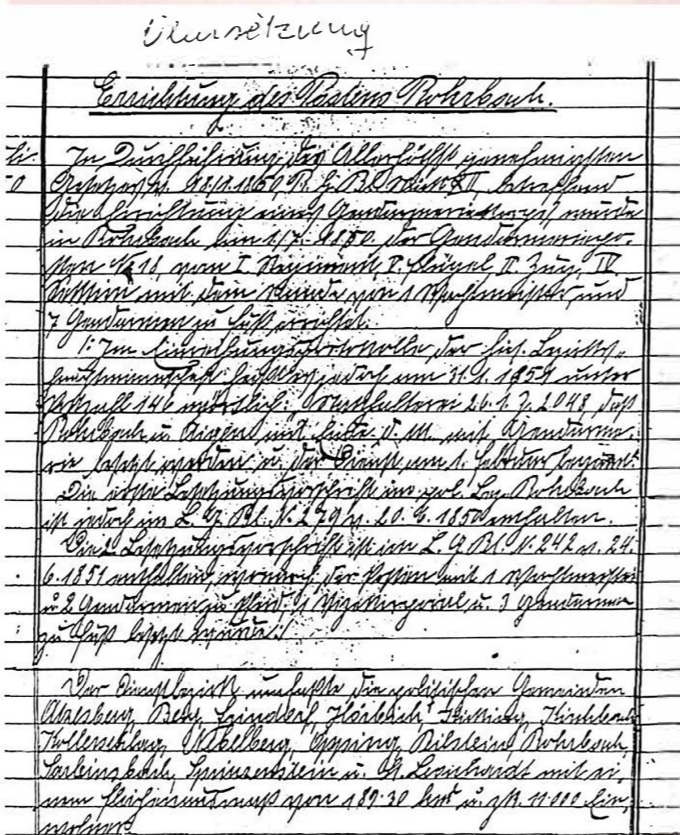 Übersetzung
Errichtung des Postens Rohrbach.
In Durchführung des Allerhöchst genehmigten
betreffend
die Errichtung eines Gendarmerie wurde
in Rohrbach am 1/7. 1850. der Gendarmeriepo-
sten 18 vom I Regiment, Flügel, Zug, IV
Sektion mit dem Stande von 1 Wachtmeister und
7 Gendarmen zu Fuß errichtet.
1: Im Einreichungsprotokolle der hies. Bezirks-
hauptmannschaft jedoch am 31.1. 1854 unter
146 wörtlich: Statthalterei 26.1. Z. 2048, daß
Rohrbach u. Aigen mit Ende d. M. mit Gendarme-
rie besetzt werden u. der Dienst am 1. Februar beginnt.
Die erste Besetzungsvorschrift im pol. Bez. Rohrbach
ist jedoch im L. G. Bl. N. 279 v. 20. 6. 1850 enthalten.
Die 2. Besetzungsvorschrift ist im L. G. Bl. N. 242 v. 24.
6. 1851 enthalten, wonach der Posten mit 1 Wachtmeister
u 2 Gendarmen zu Pferd, 1 Vizekorporal u. 3 Gendarmen
zu Fuß besetzt wurde:/
Der Dienstbezirk umfaßte die politischen Gemeinden
Atzesberg, Berg, Hörbich,
Kollerschlag, Nebelberg, Oepping, Peilstein, Rohrbach,
Sarleinsbach, Sprinzenstein u. St. Leonhardt mit ei-
nem Flächenausmaß von 189.30 km² u. zk. 11.000 Ein-
wohner.